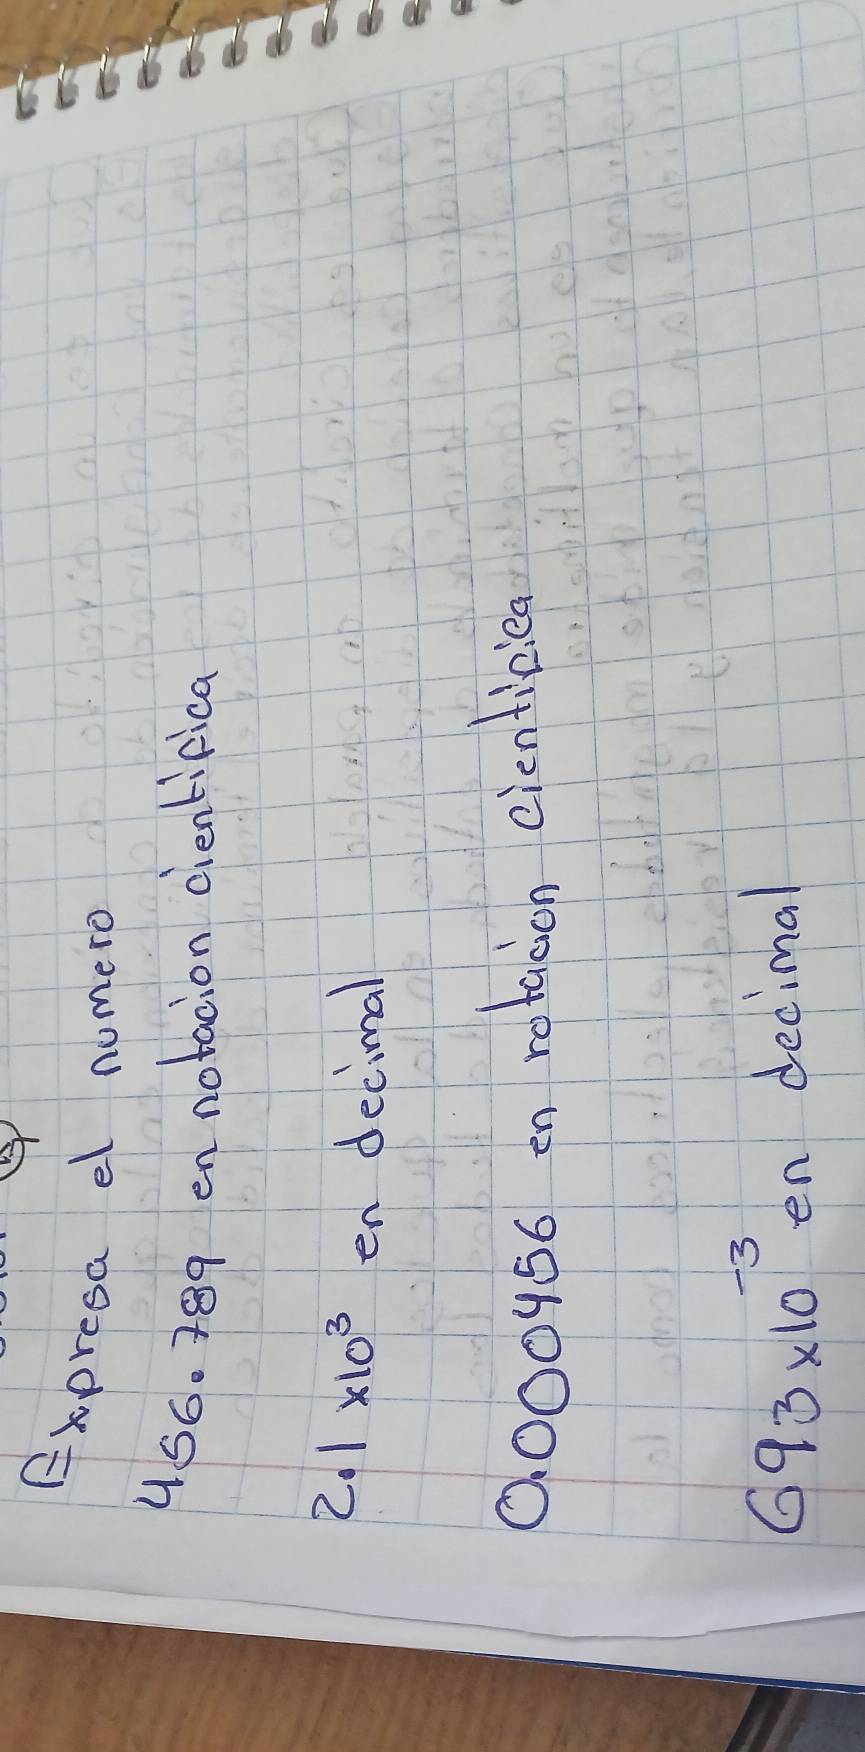 Expresa el numero
456.789 en notacion cientifica
2.1 x10³ en decimal
0.000456 en notacion cientifica
693x10⁻³ en decimal